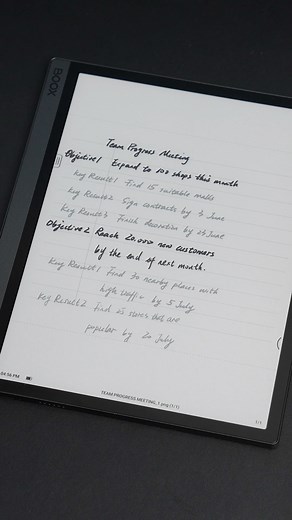 BOOX
Team Progress Meeting
Objective 1 Expand to 100 shops this month
Key Result 1 Find 15 suitable malls
Key Result 2 Sign contracts by 5 June
Key Result 3 Finish decoration by 25 June
Objective 2 Reach 20,000 new customers
by the end of next month.
Key Result 1 Find 30 nearby places with
high traffic by 5 July
Key Result 2 Find 25 that are
popular by 20 July
04:56 PM
TEAM PROGRESS MEETING_1.png (1/1)
1/1